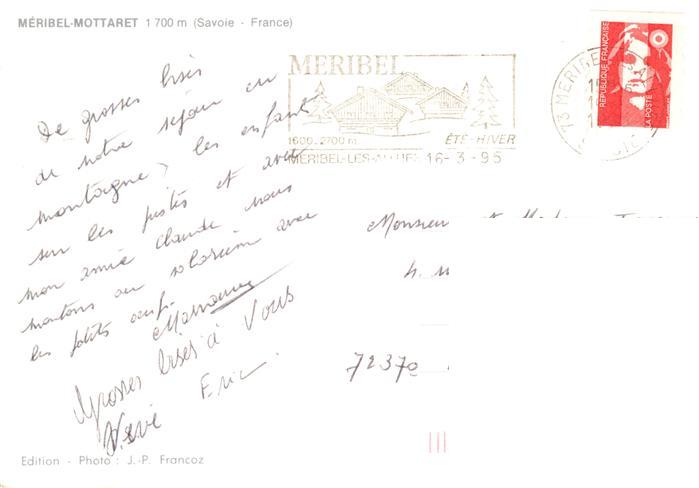 MÉRIBEL-MOTTARET 1 700 m (Savoie - France)
MERIBEL
1600-2700 m.
ÉTÉ-HIVER
MÉRIBEL-LES- 16-3-95
73 MERIBEL
REPUBLIQUE FRANÇAISE
LA POSTE
De grosses bises
de notre séjour en
montagne, les enfants
sur les pistes et avec
mon amie Claude nous
montons au solarium avec
les petits
Grosses bises à Vous
Hervé Eric
Monsieur et
4,
72370
Edition - Photo : J.-P. Francoz